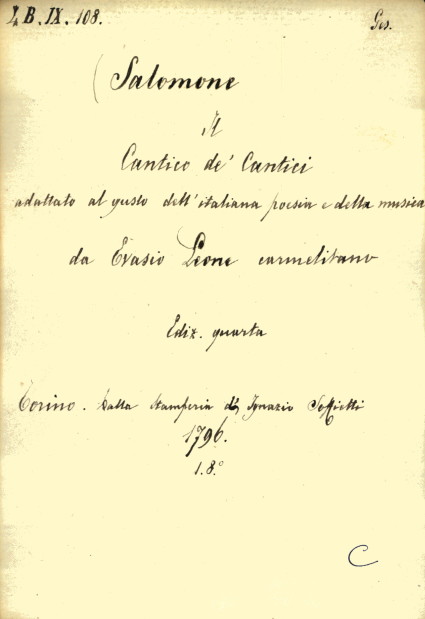 I, B. IX. 108. Ges.
(Salomone
Il
Cantico de' Cantici
adattato al gusto dell'italiana poesia e della musica
da Evasio Leone carmelitano
Ediz. quarta
Torino. Dalla stamperia d' Ignazio Soffietti
1796.
1. 8.°
C